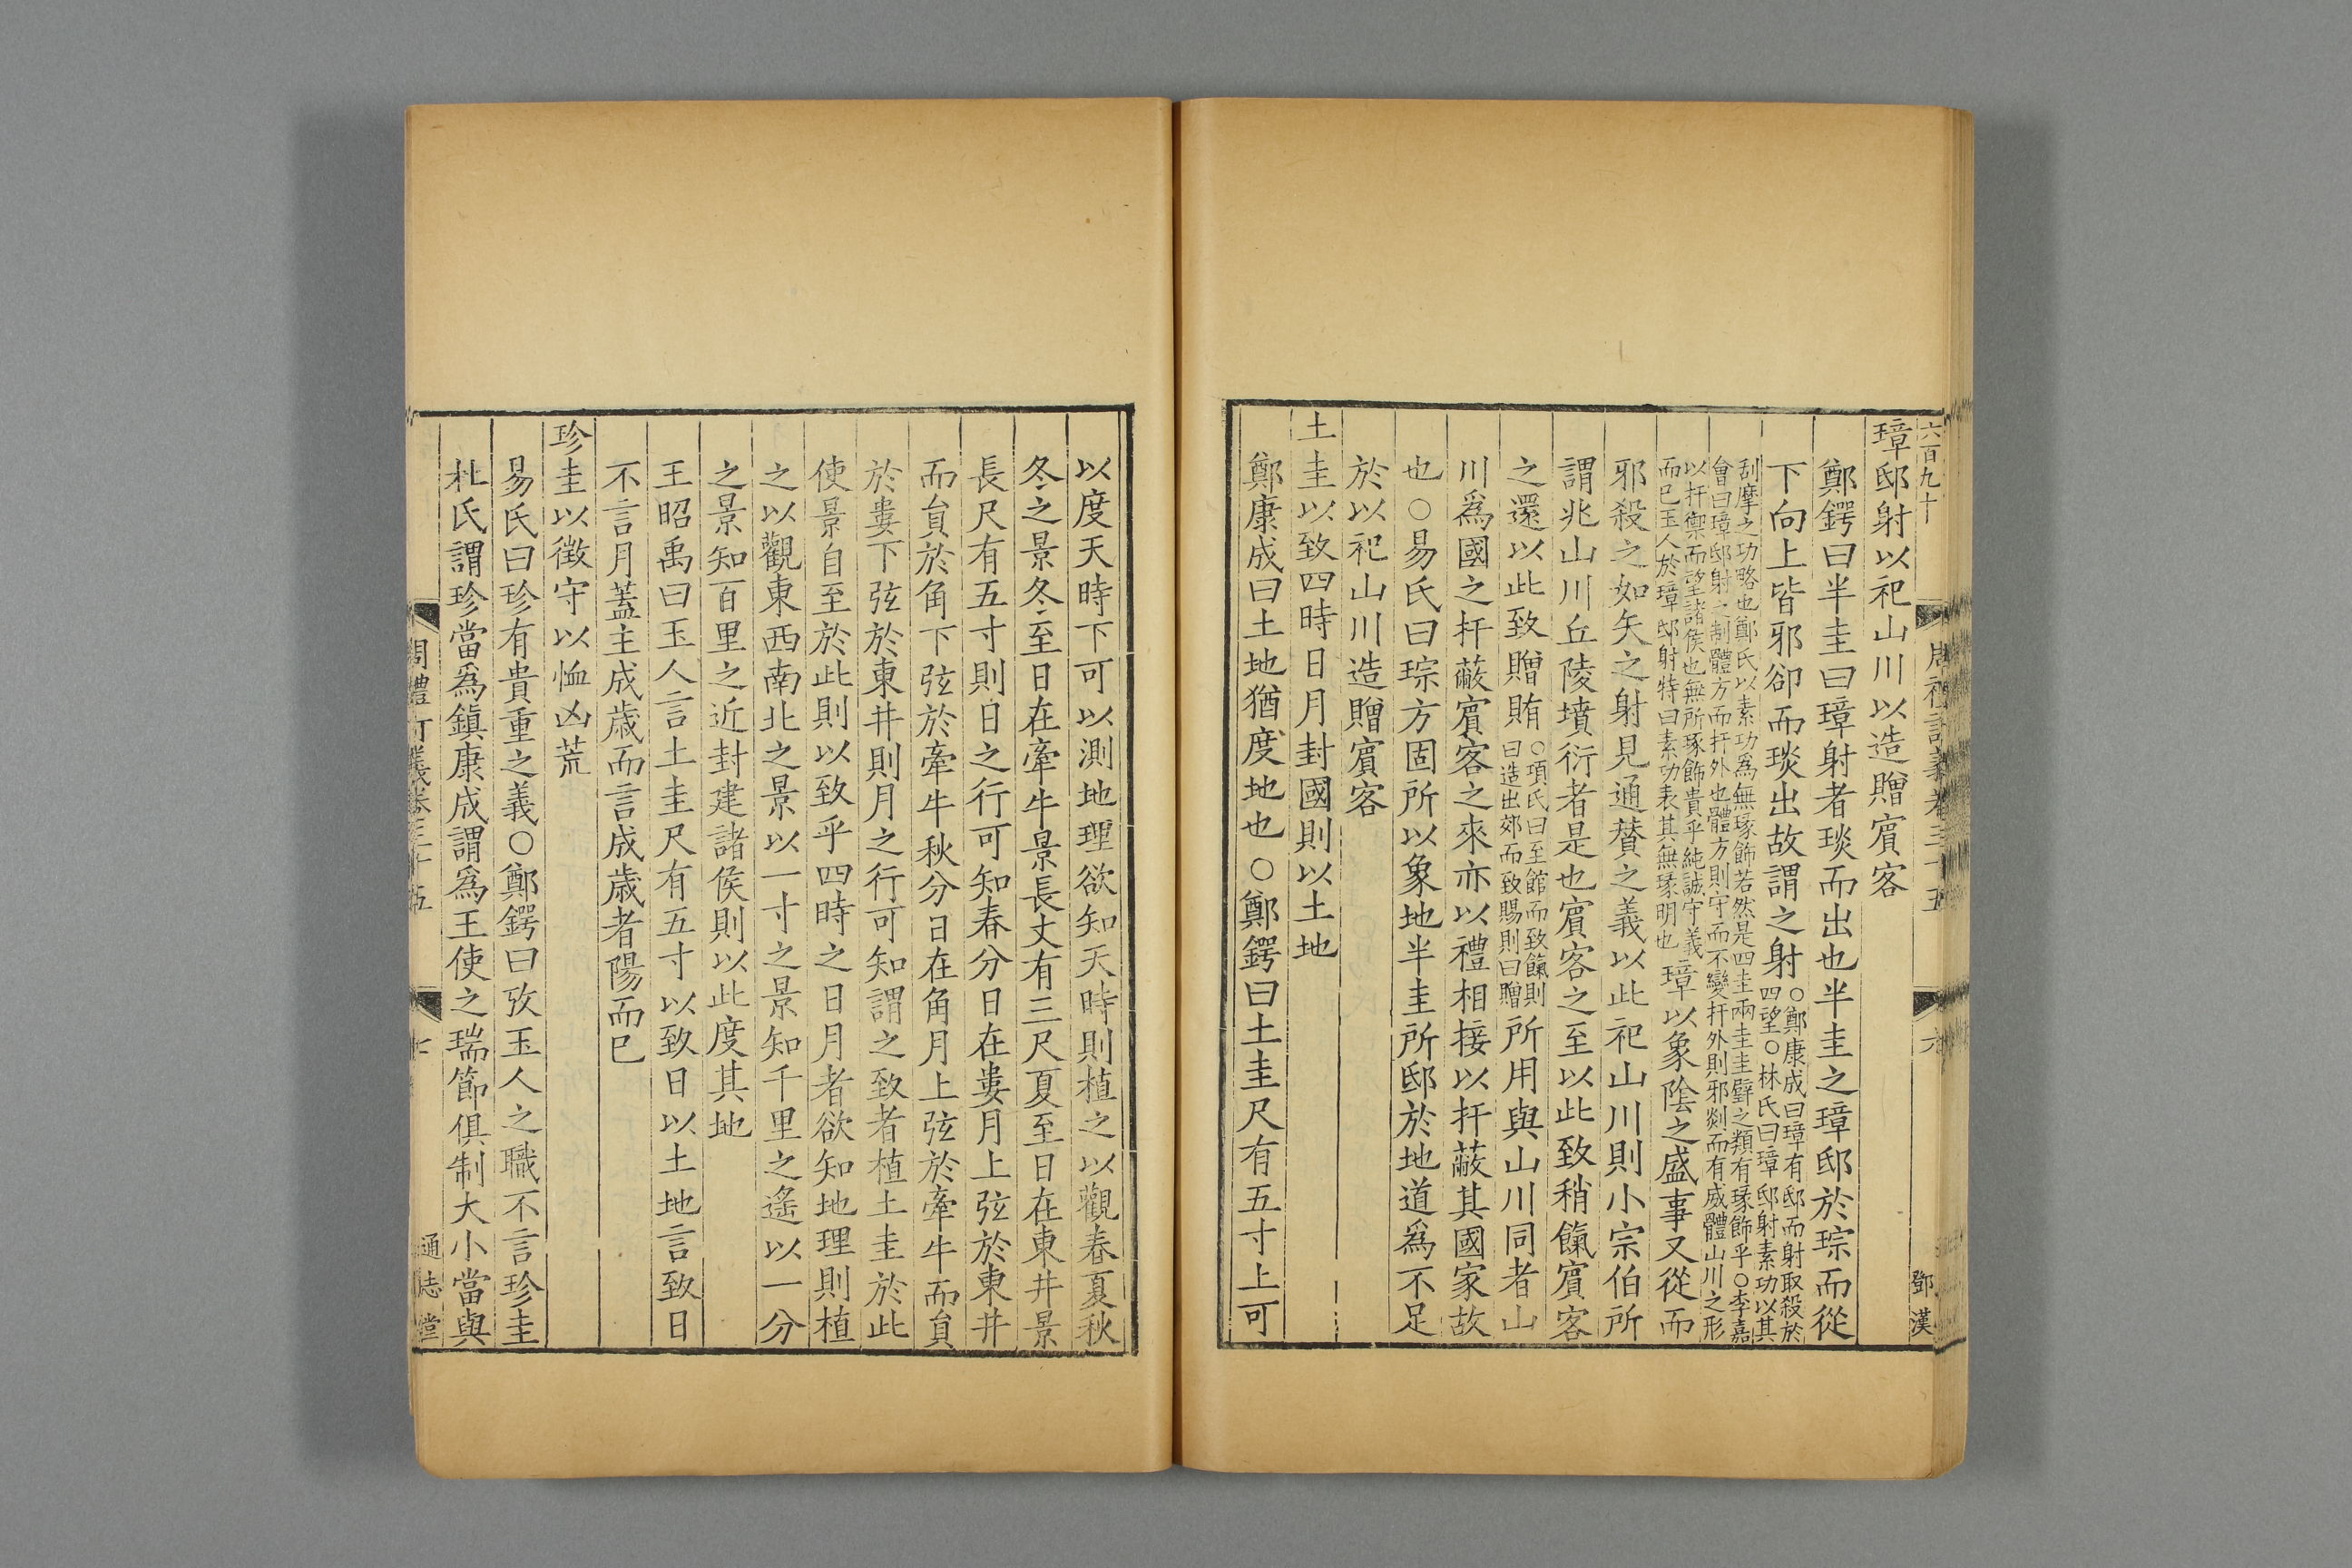 六百九十
鄧漢
璋邸射以祀山川以造贈賔客
鄭鍔曰半圭曰璋射者琰而出也半圭之璋邸於琮而從
下向上皆邪卻而琰出故謂之射○鄭康成曰璋有邸而射取殺於四望○林氏曰璋邸射素功以其
刮摩之功略也鄭氏以素功爲無瑑飾若然是四圭兩圭圭璧之類有瑑飾乎○李嘉
會曰璋邸射之制體方而扞外也體方則守而不變扞外則邪剡而有威體山川之形
以扞禦而望諸侯也無所琢飾貴乎純誠守義
而已玉人於璋邸射特曰素功表其無瑑明也璋以象陰之盛事又從而
邪殺之如矢之射見通賛之義以此祀山川則小宗伯所
謂兆山川丘陵墳衍者是也賔客之至以此致稍餼賔客
之還以此致贈賄○項氏曰至館而致餼則曰造出郊而致賜則曰贈所用與山川同者山
川爲國之扞蔽賔客之來亦以禮相接以扞蔽其國家故
也○易氏曰琮方固所以象地半圭所邸於地道爲不足
於以祀山川造贈賔客
土圭以致四時日月封國則以土地
鄭康成曰土地猶度地也○鄭鍔曰土圭尺有五寸上可
以度天時下可以測地理欲知天時則植之以觀春夏秋
冬之景冬至日在牽牛景長丈有三尺夏至日在東井景
長尺有五寸則日之行可知春分日在婁月上弦於東井
而貟於角下弦於牽牛秋分日在角月上弦於牽牛而貟
於婁下弦於東井則月之行可知謂之致者植土圭於此
使景自至於此則以致乎四時之日月者欲知地理則植
之以觀東西南北之景以一寸之景知千里之遙以一分
之景知百里之近封建諸侯則以此度其地
王昭禹曰玉人言土圭尺有五寸以致日以土地言致日
不言月蓋主成歲而言成歲者陽而已
珍圭以徵守以恤凶荒
易氏曰珍有貴重之義○鄭鍔曰攷玉人之職不言珍圭
杜氏謂珍當爲鎮康成謂爲王使之瑞節俱制大小當與
周禮訂義卷三十五
七
通志堂